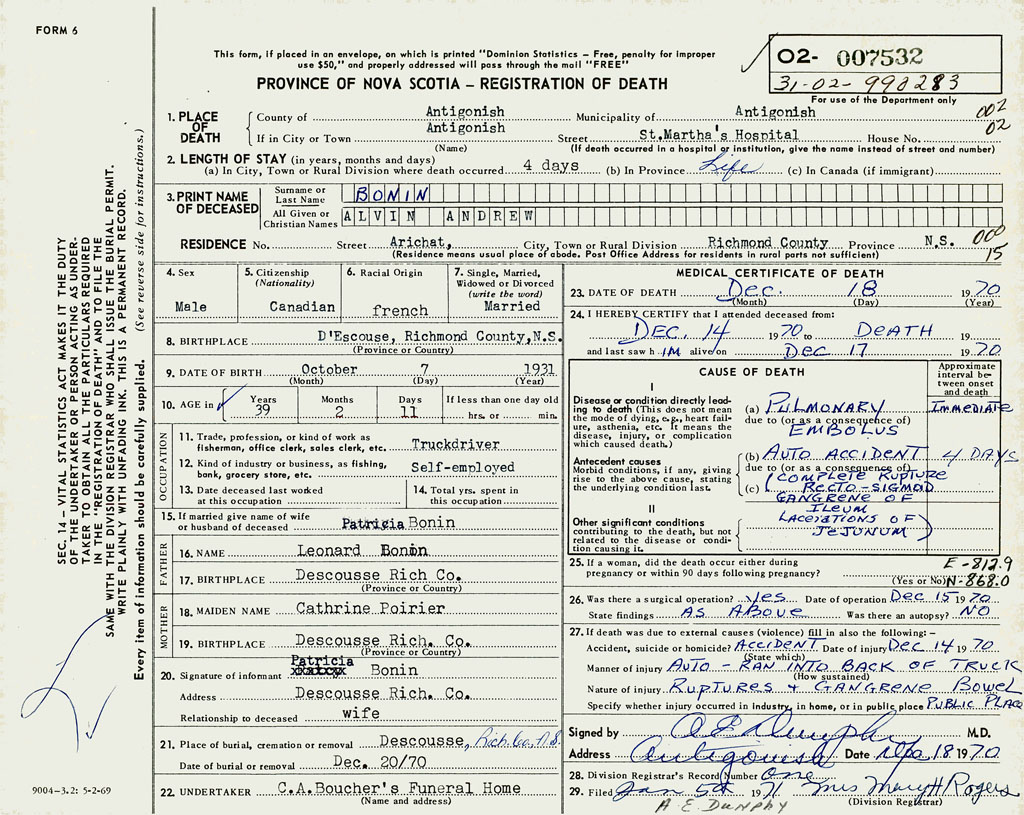 FORM 6
This form, if placed in an envelope, on which is printed "Dominion Statistics – Free, penalty for improper
use $50," and properly addressed will pass through the mail "FREE"
PROVINCE OF NOVA SCOTIA – REGISTRATION OF DEATH
02- 007532
31-02-990283
For use of the Department only
1. PLACE OF DEATH
County of Antigonish Municipality of Antigonish 002
If in City or Town Antigonish Street St.Martha's Hospital House No. 02
(Name) (If death occurred in a hospital or institution, give the name instead of street and number)
2. LENGTH OF STAY (in years, months and days)
(a) In City, Town or Rural Division where death occurred 4 days (b) In Province Life (c) In Canada (if immigrant)
3. PRINT NAME OF DECEASED
Surname or Last Name BONIN
All Given or Christian Names ALVIN ANDREW
RESIDENCE No. Street Arichat, City, Town or Rural Division Richmond County Province N.S. 000
(Residence means usual place of abode. Post Office Address for residents in rural parts not sufficient) 15
4. Sex
Male
5. Citizenship
(Nationality)
Canadian
6. Racial Origin
french
7. Single, Married,
Widowed or Divorced
(write the word)
Married
8. BIRTHPLACE D'Escouse, Richmond County,N.S.
(Province or Country)
9. DATE OF BIRTH October 7 1931
(Month) (Day) (Year)
10. AGE in Years Months Days If less than one day old
39 2 11 hrs. or min.
OCCUPATION
11. Trade, profession, or kind of work as
fisherman, office clerk, sales clerk, etc. Truckdriver
12. Kind of industry or business, as fishing,
bank, grocery store, etc. Self-employed
13. Date deceased last worked
at this occupation
14. Total yrs. spent in
this occupation
15. If married give name of wife
or husband of deceased Patricia Bonin
FATHER
16. NAME Leonard Bonin
17. BIRTHPLACE Descousse Rich Co.
MOTHER
18. MAIDEN NAME Cathrine Poirier
19. BIRTHPLACE Descousse Rich. Co.
(Province or Country)
Patricia
20. Signature of informant Bonin
Address Descousse Rich. Co.
Relationship to deceased wife
21. Place of burial, cremation or removal Descousse, Rich. Co. N.S.
Date of burial or removal Dec. 20/70
22. UNDERTAKER C.A.Boucher's Funeral Home
(Name and address)
MEDICAL CERTIFICATE OF DEATH
23. DATE OF DEATH Dec. 18 1970
(Month) (Day) (Year)
24. I HEREBY CERTIFY that I attended deceased from:
DEC. 14 1970 to DEATH 19
and last saw h IM alive on DEC 17 1970
CAUSE OF DEATH
Approximate
interval be-
tween onset
and death
I
Disease or condition directly lead-
ing to death (This does not mean
the mode of dying, e.g., heart fail-
ure, asthenia, etc. It means the
disease, injury, or complication
which caused death.)
(a) PULMONARY IMMEDIATE
due to (or as a consequence of)
EMBOLUS
Antecedent causes
Morbid conditions, if any, giving
rise to the above cause, stating
the underlying condition last.
(b) AUTO ACCIDENT 4 DAYS
due to (or as a consequence of)
(c) (COMPLETE RUPTURE
RECTO-SIGMOID
GANGRENE OF
ILEUM
II
Other significant conditions
contributing to the death, but not
related to the disease or condi-
tion causing it.
LACERATIONS OF
JEJUNUM)
25. If a woman, did the death occur either during
pregnancy or within 90 days following pregnancy?
(Yes or No)
E-812.9
N-868.0
26. Was there a surgical operation? yes Date of operation Dec 15 1970
State findings AS ABOVE Was there an autopsy? NO
27. If death was due to external causes (violence) fill in also the following: –
Accident, suicide or homicide? ACCIDENT Date of injury DEC 14 1970
(State which)
Manner of injury AUTO – RAN INTO BACK OF TRUCK
(How sustained)
Nature of injury RUPTURES + GANGRENE BOWEL
Specify whether injury occurred in industry, in home, or in public place PUBLIC PLACE
Signed by A E Dunphy M.D.
Address Antigonish Date Dec. 18 1970
28. Division Registrar's Record Number One
29. Filed Jan 5th 1971 Mrs Mary H Rogers
A. E. DUNPHY (Division Registrar)
SEC. 14 – VITAL STATISTICS ACT MAKES IT THE DUTY
OF THE UNDERTAKER OR PERSON ACTING AS UNDER-
TAKER TO OBTAIN ALL THE PARTICULARS REQUIRED
IN THE "REGISTRATION OF DEATH" AND TO FILE THE
SAME WITH THE DIVISION REGISTRAR WHO SHALL ISSUE THE BURIAL PERMIT.
WRITE PLAINLY WITH UNFADING INK. THIS IS A PERMANENT RECORD.
Every item of information should be carefully supplied. (See reverse side for instructions.)
9004-3.2: 5-2-69